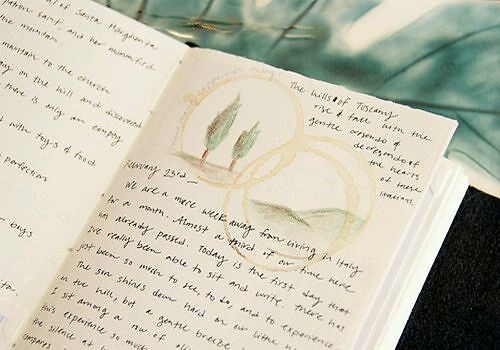 of Santa Margherita
patron saint and her mummified
the mountain
mountain to the church
on the hill and discovered
there is only an empty
with toys & food
perfection
boys
The hills of Tuscany
rise & fall with the
gentle cresendo &
decresendo of
the hearts
of these
Italians.
February 23rd —
We are a mere week away from living in Italy
for a month. Almost a third of our time here
has already passed. Today is the first day that
I've really been able to sit and write. There has
just been so much to see, to do, and to experience.
The sun shines down hard on our little
in the hill, but a gentle breeze
I sit among a row of
this experience so much
the silence at